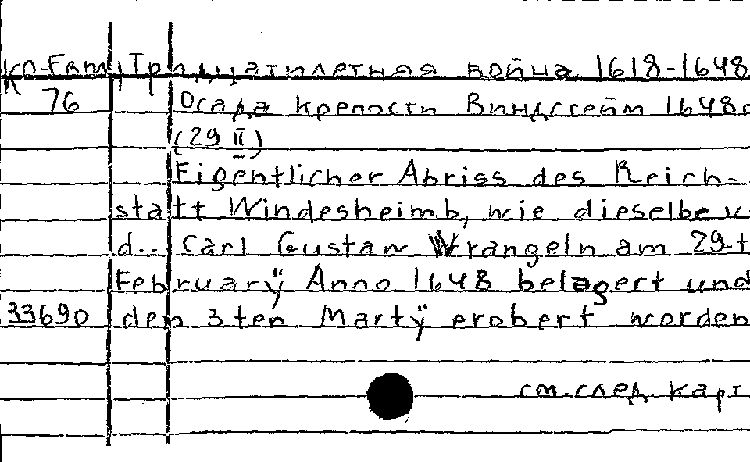 Ко-Germ, Тридцатилетняя война 1618-1648
76 Осада крепости Виндсгейм 1648г
(29 II)
Eigentlicher Abriss des Reich-
statt Windesheimb, wie dieselbe v
d.. Carl Gustav Wrangeln am 29-t
Februarÿ Anno 1648 belagert und
33690 den 3ten Martÿ erobert worden
см. след. карт